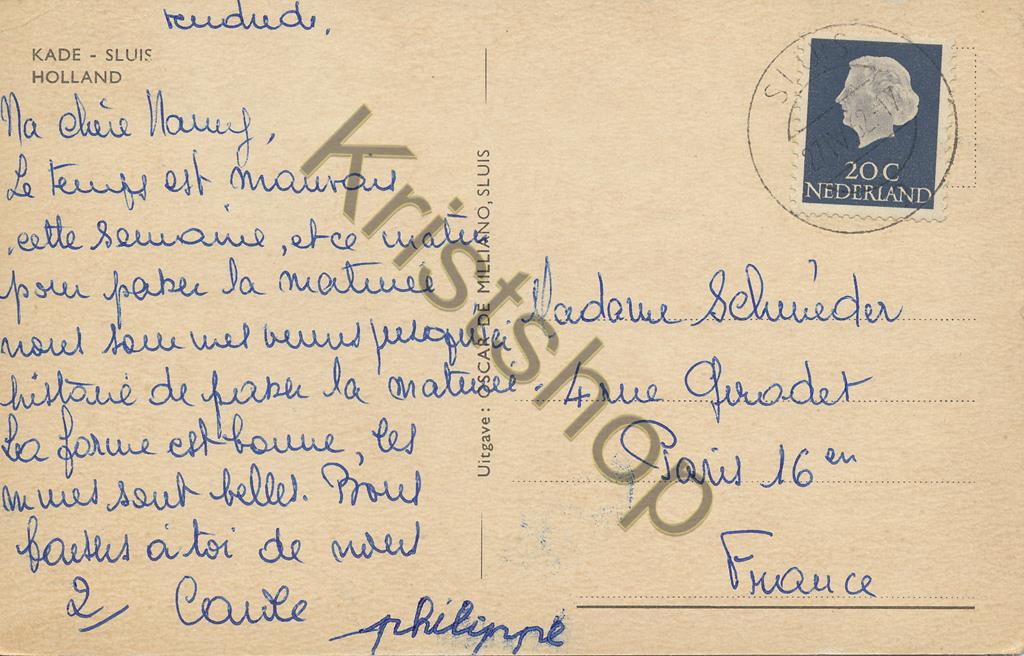 vendredi.
KADE - SLUIS
HOLLAND
Ma chère Nanny,
Le temps est mauvais
cette semaine, et ce matin
pour passer la matinée
nous sommes venus jusqu'ici
histoire de passer la matinée.
La forme est bonne, les
mines sont belles. Bons
baisers à toi de nous
2
philippe
Uitgave: OSCAR DE MILLIANO, SLUIS
SLUIS
20C
NEDERLAND
Madame Schneder
4 rue Girodet
Paris 16 en
France
Kristshop